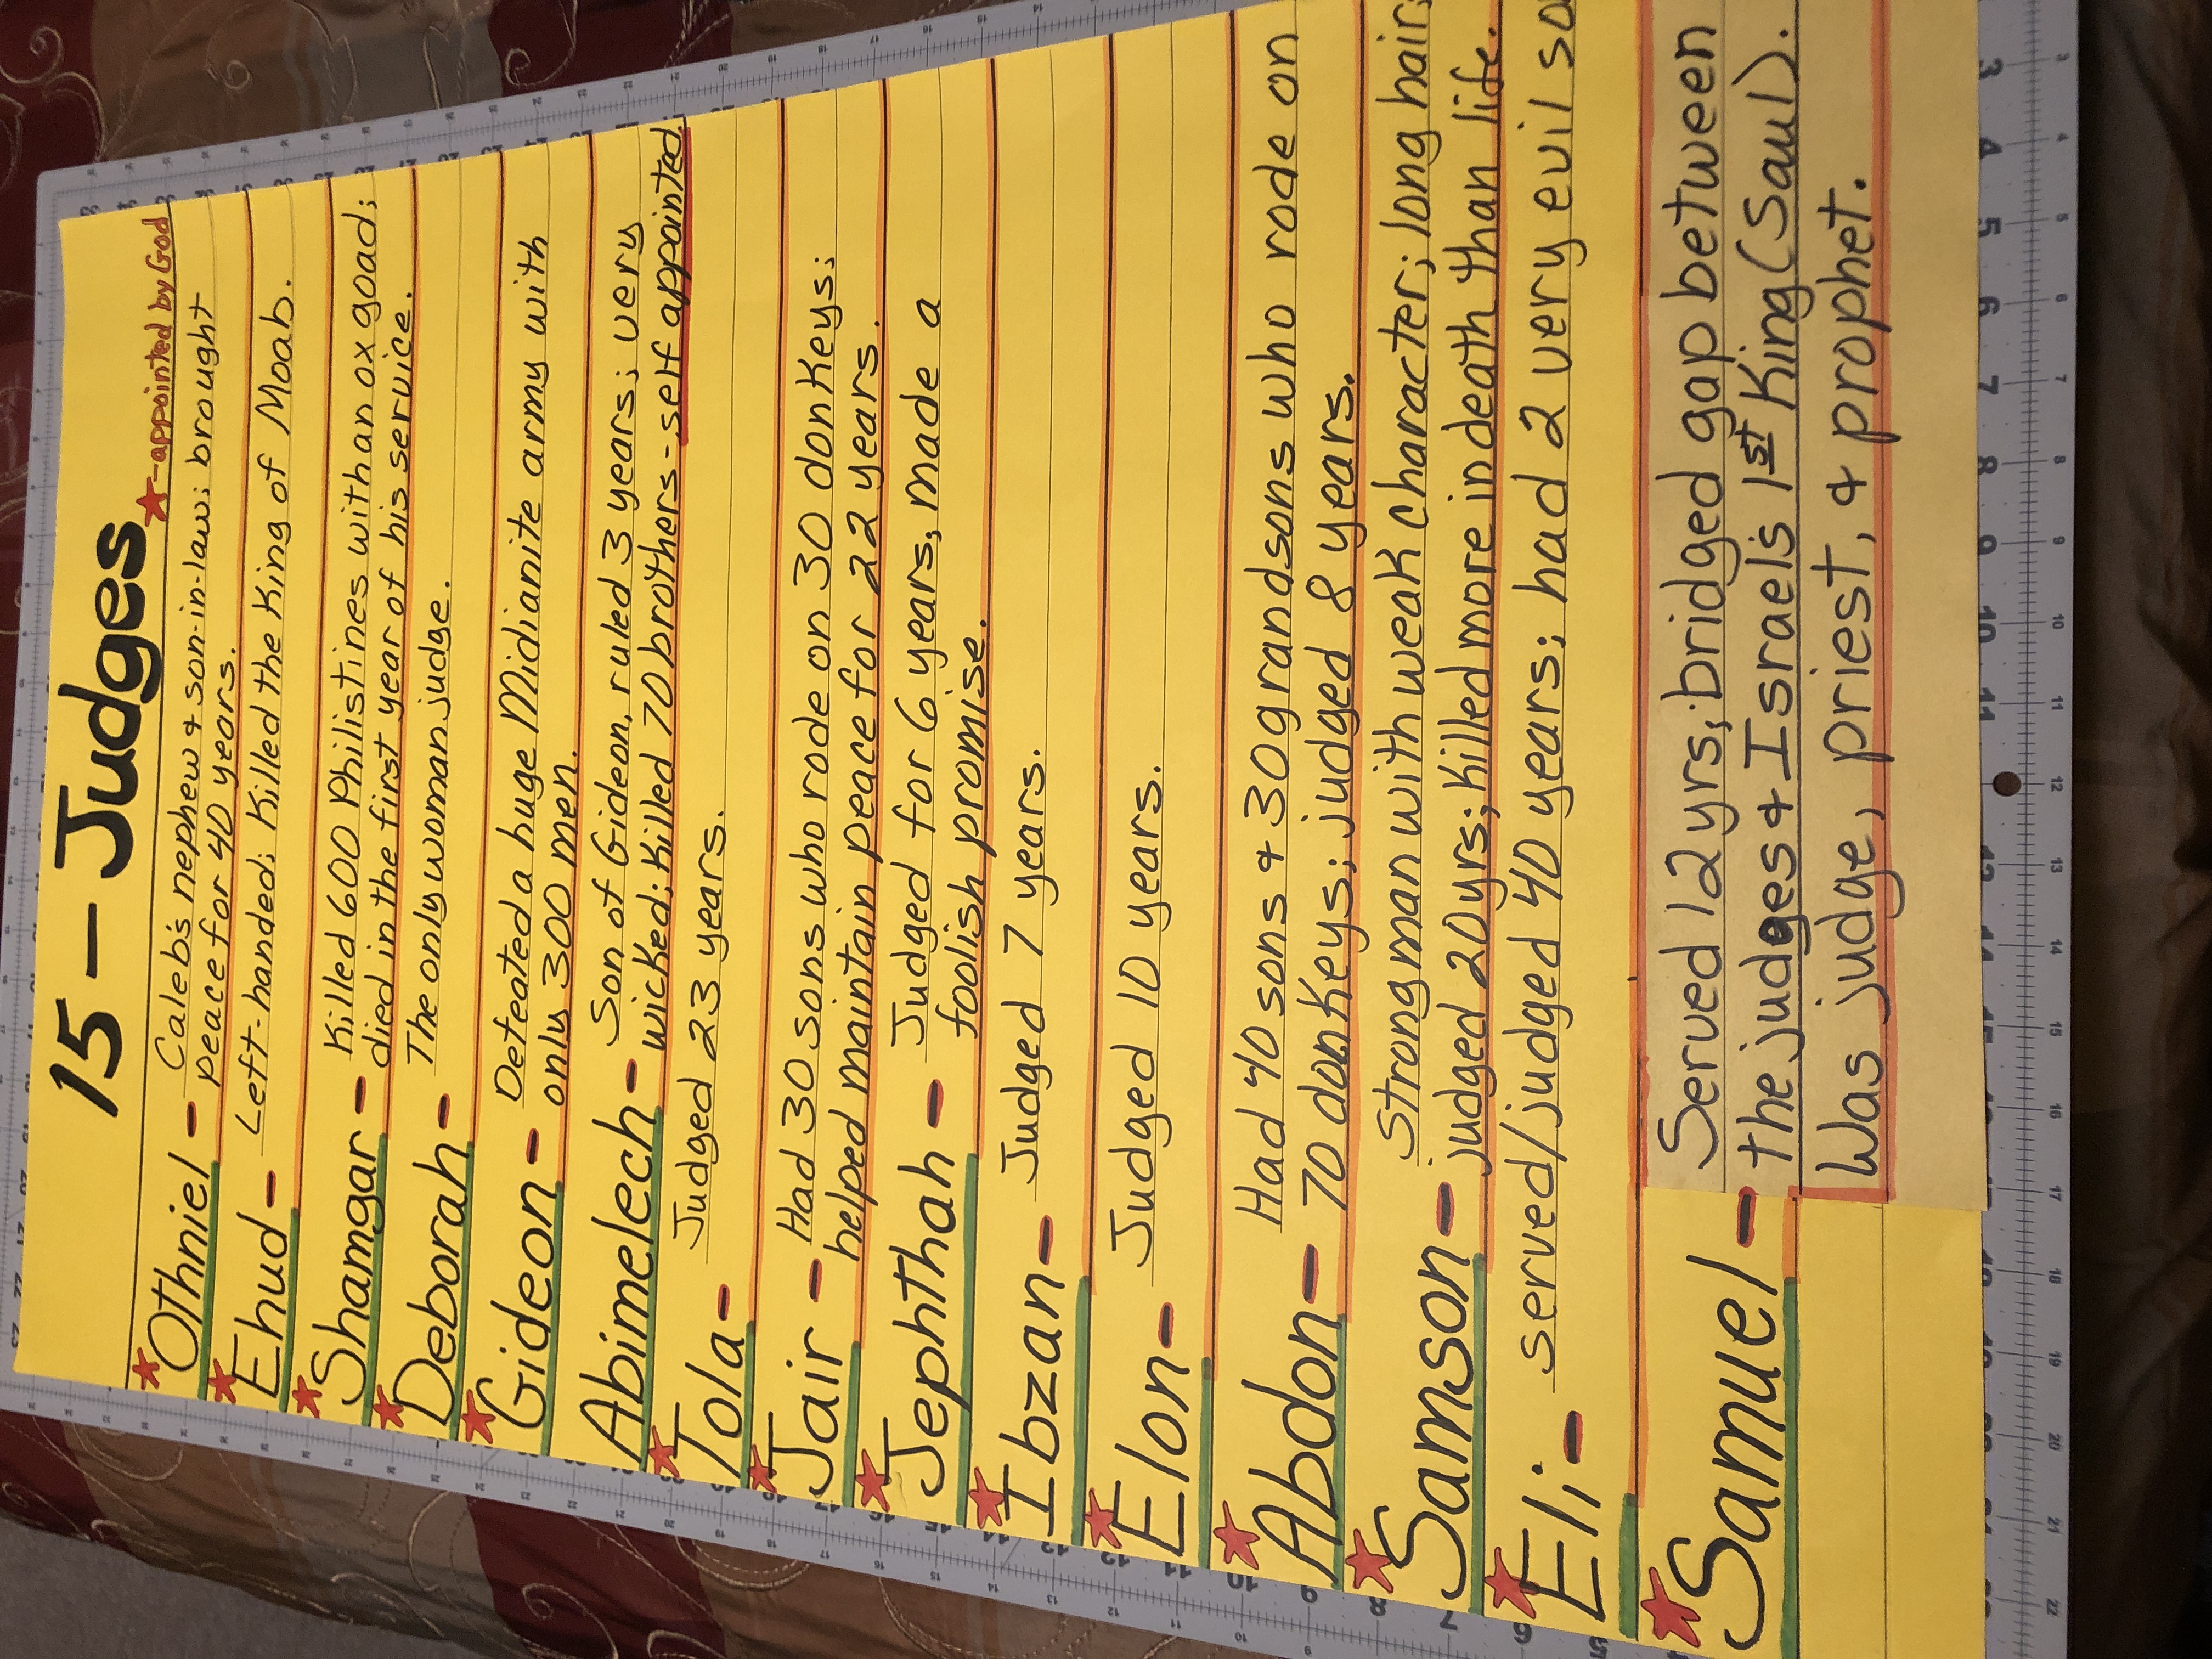 15 - Judges
★-appointed by God
★ Othniel - Caleb's nephew & son-in-law; brought
peace for 40 years.
★ Ehud - Left-handed; Killed the King of Moab.
★ Shamgar - Killed 600 Philistines with an ox goad;
died in the first year of his service.
★ Deborah - The only woman judge.
★ Gideon - Defeated a huge Midianite army with
only 300 men.
Abimelech - Son of Gideon, ruled 3 years; very
wicked; Killed 70 brothers - self appointed
★ Tola - Judged 23 years.
★ Jair - Had 30 sons who rode on 30 donkeys;
helped maintain peace for 22 years.
★ Jephthah - Judged for 6 years, made a
foolish promise.
★ Ibzan - Judged 7 years.
★ Elon - Judged 10 years.
★ Abdon - Had 40 sons & 30 grandsons who rode on
70 donkeys; judged 8 years.
★ Samson - Strongman with weak character; long hair;
judged 20 yrs; killed more in death than life.
★ Eli - served/judged 40 years; had 2 very evil so
★ Samuel - Served 12 yrs; bridged gap between
the judges & Israel's 1st King (Saul).
Was judge, priest, & prophet.